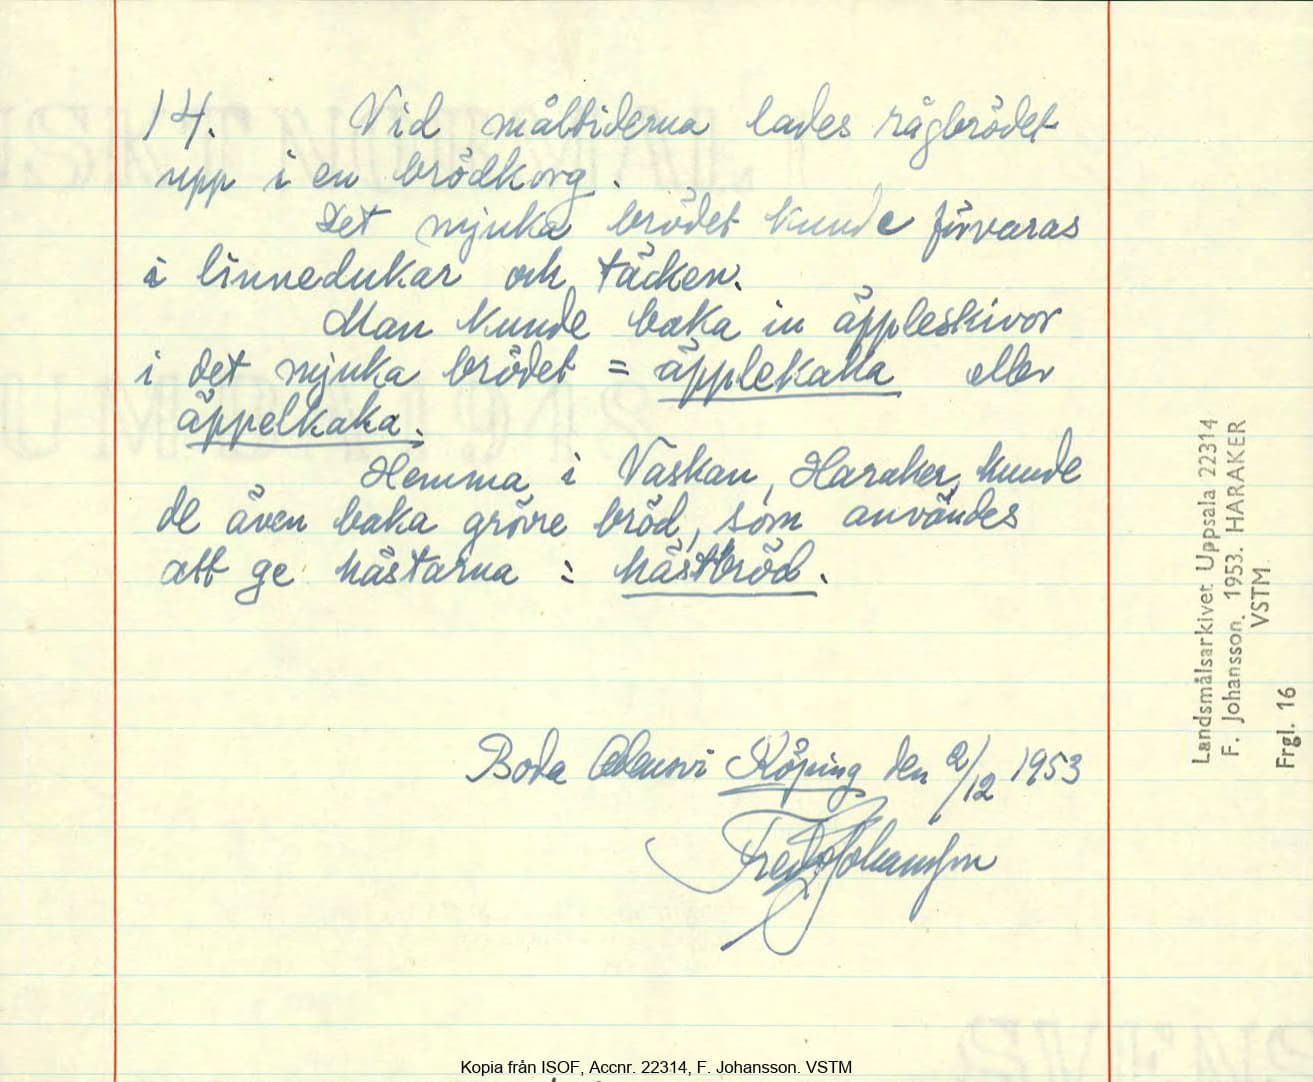 14. Vid måltiderna lades rågbrödet
upp i en brödkorg.
Det mjuka brödet kunde förvaras
i linnedukar och täcken.
Man kunde baka in äppleskivor
i det mjuka brödet = äpplekaka eller
äppelkaka.
Hemma i Vaskan, Haraker, kunde
de även baka grövre bröd, som användes
att ge hästarna = hästbröd.
Boda Odensvi Köping den 2/12 1953
Fred Johansson
Landsmålsarkivet Uppsala 22314
F. Johansson. 1953. HARAKER
VSTM
Frgl. 16
Kopia från ISOF, Accnr. 22314, F. Johansson. VSTM